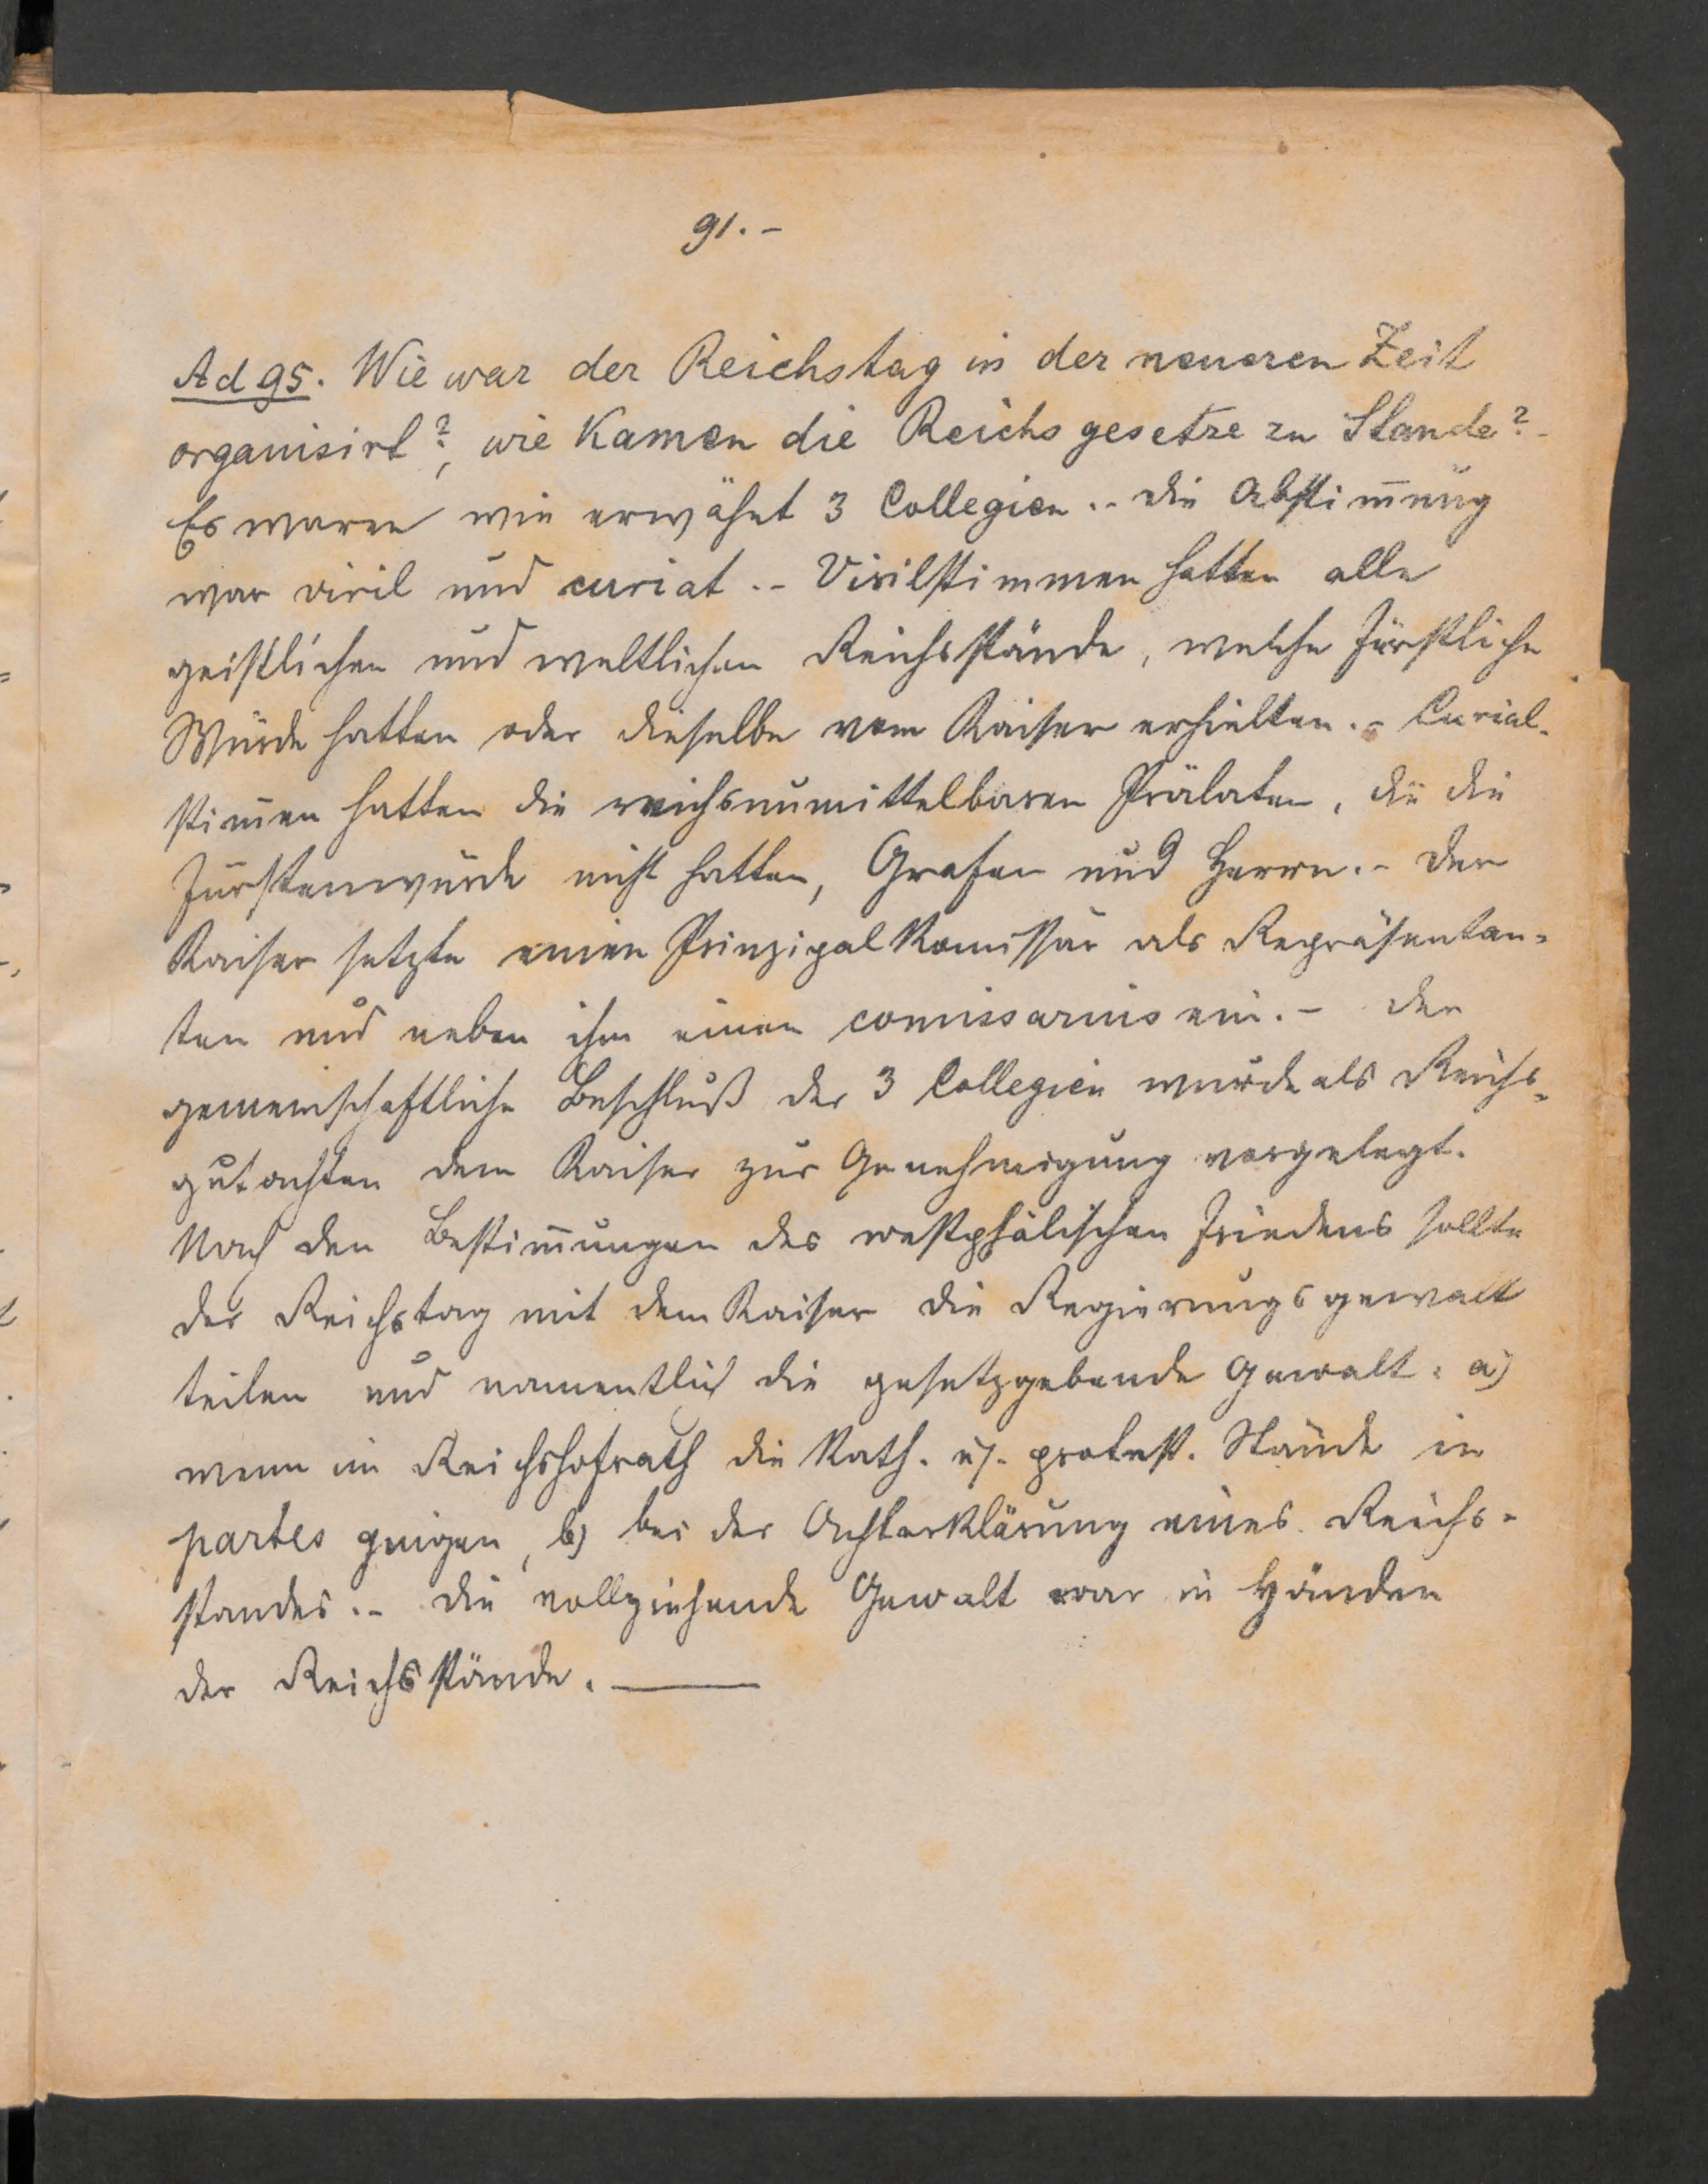 91.-
Ad 95. Wie war der Reichstag in der neueren Zeit
organisirt?, wie kamen die Reichsgesetze zu Stande? -
Es waren wie erwähnt 3 Collegien. - Die Abstim̄ung
war viril und curiat. - Virilstimmen hatten alle
geistlichen und weltlichen Reichsstände, welche fürstliche
Würde hatten oder dieselbe vom Kaiser erhielten. - Curial-
stim̄en hatten die reichsunmittelbaren Prälaten, die die
Fürstenwürde nicht hatten, Grafen und Herrn. - Der
Kaiser setzte einen Prinzipalkom̄issär als Repräsentan-
ten und neben ihm einen comissarius ein. - Der
gemeinschaftliche Beschluß der 3 Collegien wurde als Reichs-
gutachten dem Kaiser zur Genehmigung vorgelegt.
Nach den Bestim̄ungen des westphälischen Friedens sollte
der Reichstag mit dem Kaiser die Regierungsgewalt
teilen und namentlich die gesetzgebende Gewalt: a)
wenn im Reichshofrath die Kath. u. protest. Stände in
partes gingen, b) bei der Achterklärung eines Reichs-
standes. - Die vollziehende Gewalt war in Händen
der Reichsstände. —